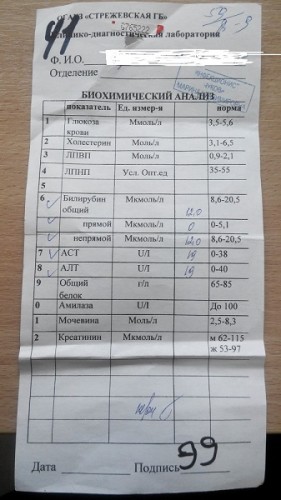 ОГАУЗ «СТРЕЖЕВСКАЯ ГБ»
Клинико-диагностическая лаборатория
Ф. И.О.
Отделение
БИОХИМИЧЕСКИЙ АНАЛИЗ
показатель Ед. измер-я норма
1 Глюкоза крови Ммоль/л 3,5-5,6
2 Холестерин Моль/л 3,1-6,5
3 ЛПВП Моль/л 0,9-2,1
4 ЛПНП Усл. Опт.ед 35-55
5
6 Билирубин общий Мкмоль/л 12.0 8,6-20,5
прямой Мкмоль/л 0 0-5,1
непрямой Мкмоль/л 12.0 8,6-20,5
7 АСТ U/l 19 0-38
8 АЛТ U/l 19 0-40
9 Общий белок г/л 65-85
0 Амилаза U/l До 100
1 Мочевина Моль/л 2,5-8,3
2 Креатинин Мкмоль/л м 62-115 ж 53-97
99
Дата Подпись